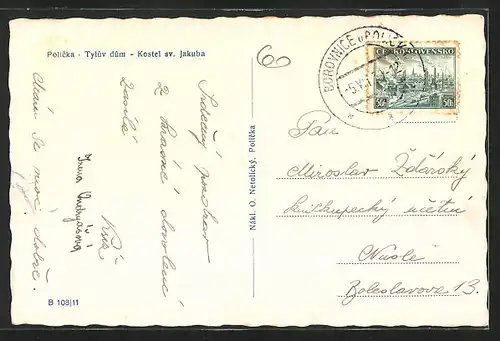 Polička - Tylův dům - Kostel sv. Jakuba
Srdečný pozdrav
z krásné dovolené
Mám se moc dobře.
Irena
B 108|11
Nákl. O. Netolický, Polička
60
BOROVNICE u POLIČKY
-5.VII.
ČESKOSLOVENSKO
50h 50h
Pan
Miroslav Žďárský
knihkupecký účetní
Nusle
Boleslavova 13.